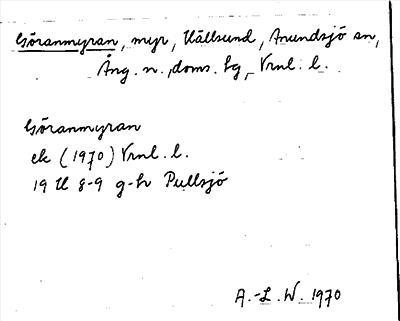 Göranmyran, myr, Hällsund, Anundsjö sn,
Ång. n. doms. lg, Vrnl. l.
Göranmyran
ek (1970) Vrnl. l.
19 H 8-9 g-h Pullsjö
A.-L. W. 1970